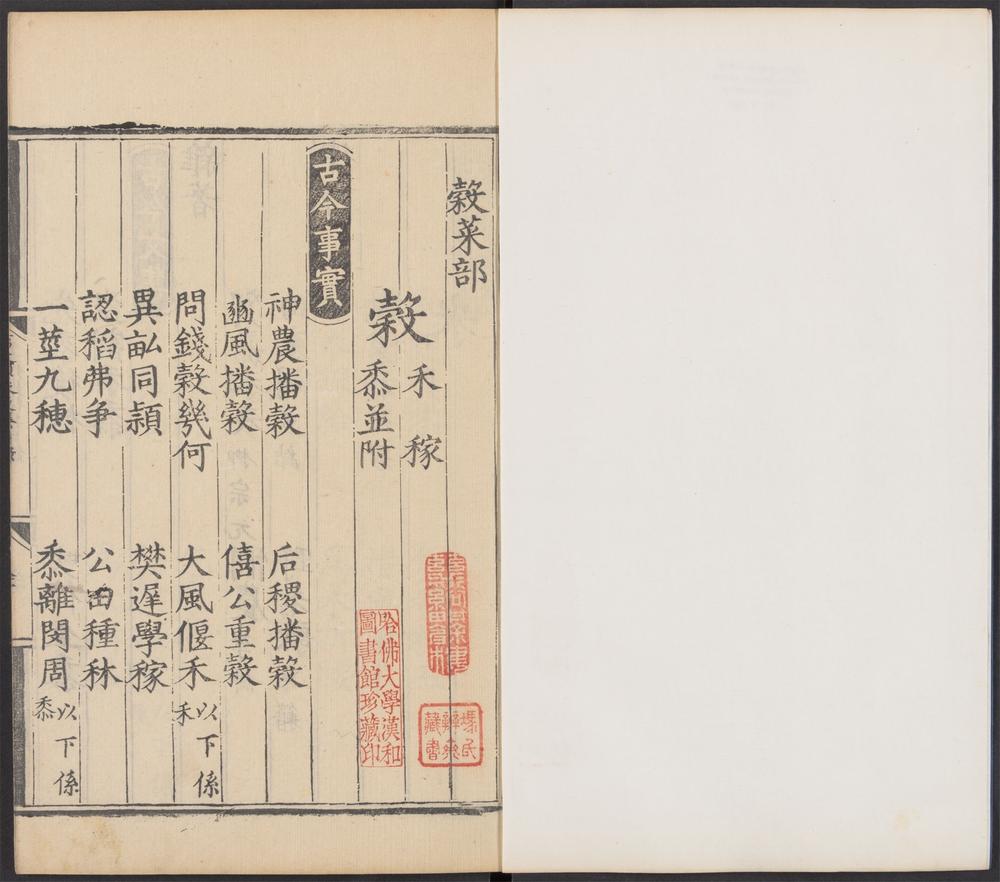 穀菜部
穀
禾 稼
黍並附
古今事實
神農播穀 后稷播穀
豳風播穀 僖公重穀
問錢穀幾何 大風偃禾 以下係禾
異畆同頴 樊遲學稼
認稻弗争 公田種秫
一莖九穗 黍離閔周 以下係黍
哈佛大學漢和
圖書館珍藏印